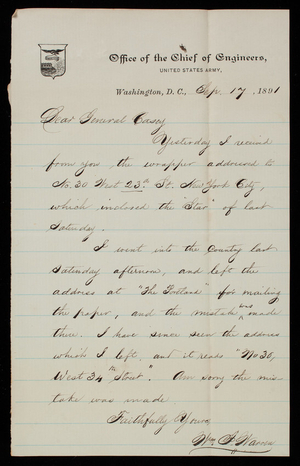 Office of the Chief of Engineers,
UNITED STATES ARMY,
Washington, D.C., Sep. 17, 1891
Dear General Casey
Yesterday I received
from you, the wrapper addressed to
No. 30 West 23d St. New York City,
which inclosed the "Star" of last
Saturday.
I went into the Country last
Saturday afternoon, and left the
address at "The Portland" for mailing
the paper, and the mistake was made
there. I have since seen the address
which I left, and it reads "No 30,
West 34th Street". Am sorry the mis-
take was made.
Faithfully Yours,
Wm. J. Warren